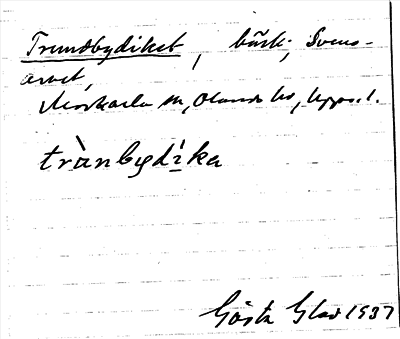 Trundbydiket, bäck; Svens-
arvet,
Morkarla sn, Olands hd, Upps. l.
trànbydíka
Gösta Glad 1937